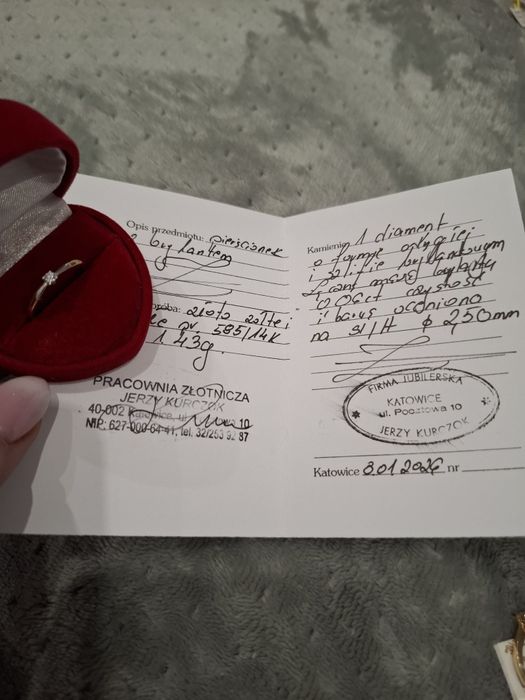 Opis przedmiotu: pierścionek
z brylantem
próba: złoto żółte i
pr. 585/14K
1.43g.
PRACOWNIA ZŁOTNICZA
JERZY KURCZOK
40-002 Katowice, ul. 10
NIP: 627-000-64-41, tel. 32/253 92 87
Kamieni 1 diament
o formie okrągłej
i szlifie brylantowym
masę
czystość
i barwę oceniono
na SI/H ϕ 2,50mm
FIRMA JUBILERSKA
KATOWICE
ul. Pocztowa 10
JERZY KURCZOK
Katowice 8.01.2026 nr